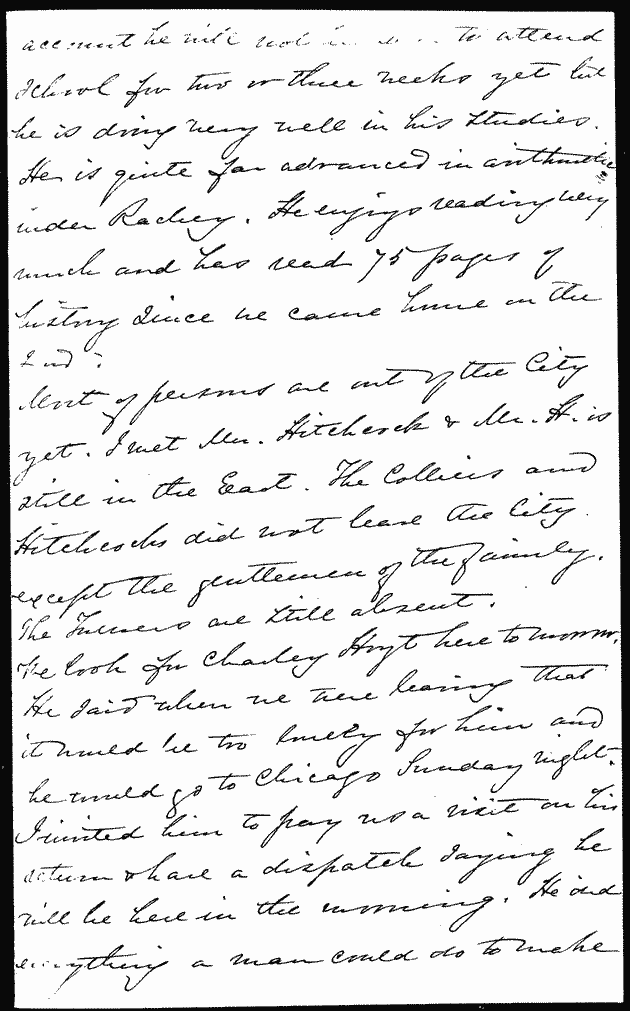 account he will not to attend
School for two or three weeks yet but
he is doing very well in his studies.
He is quite far advanced in arithmetic
under Rachey. He enjoys reading very
much and has read 75 pages of
history since we came home on the
2nd.
Most of persons are out of the City
yet. I met Mrs. Hitchcock & Mr. H. is
still in the East. The Colliers and
Hitchcocks did not leave the City
except the gentlemen of the family.
The Turners are still absent.
We look for Charley Hoyt here tomorrow.
He said when we were leaving that
it would be too lonely for him and
he would go to Chicago Sunday night.
I invited him to pay us a visit on his
return & have a dispatch saying he
will be here in the morning. He did
everything a man could do to make